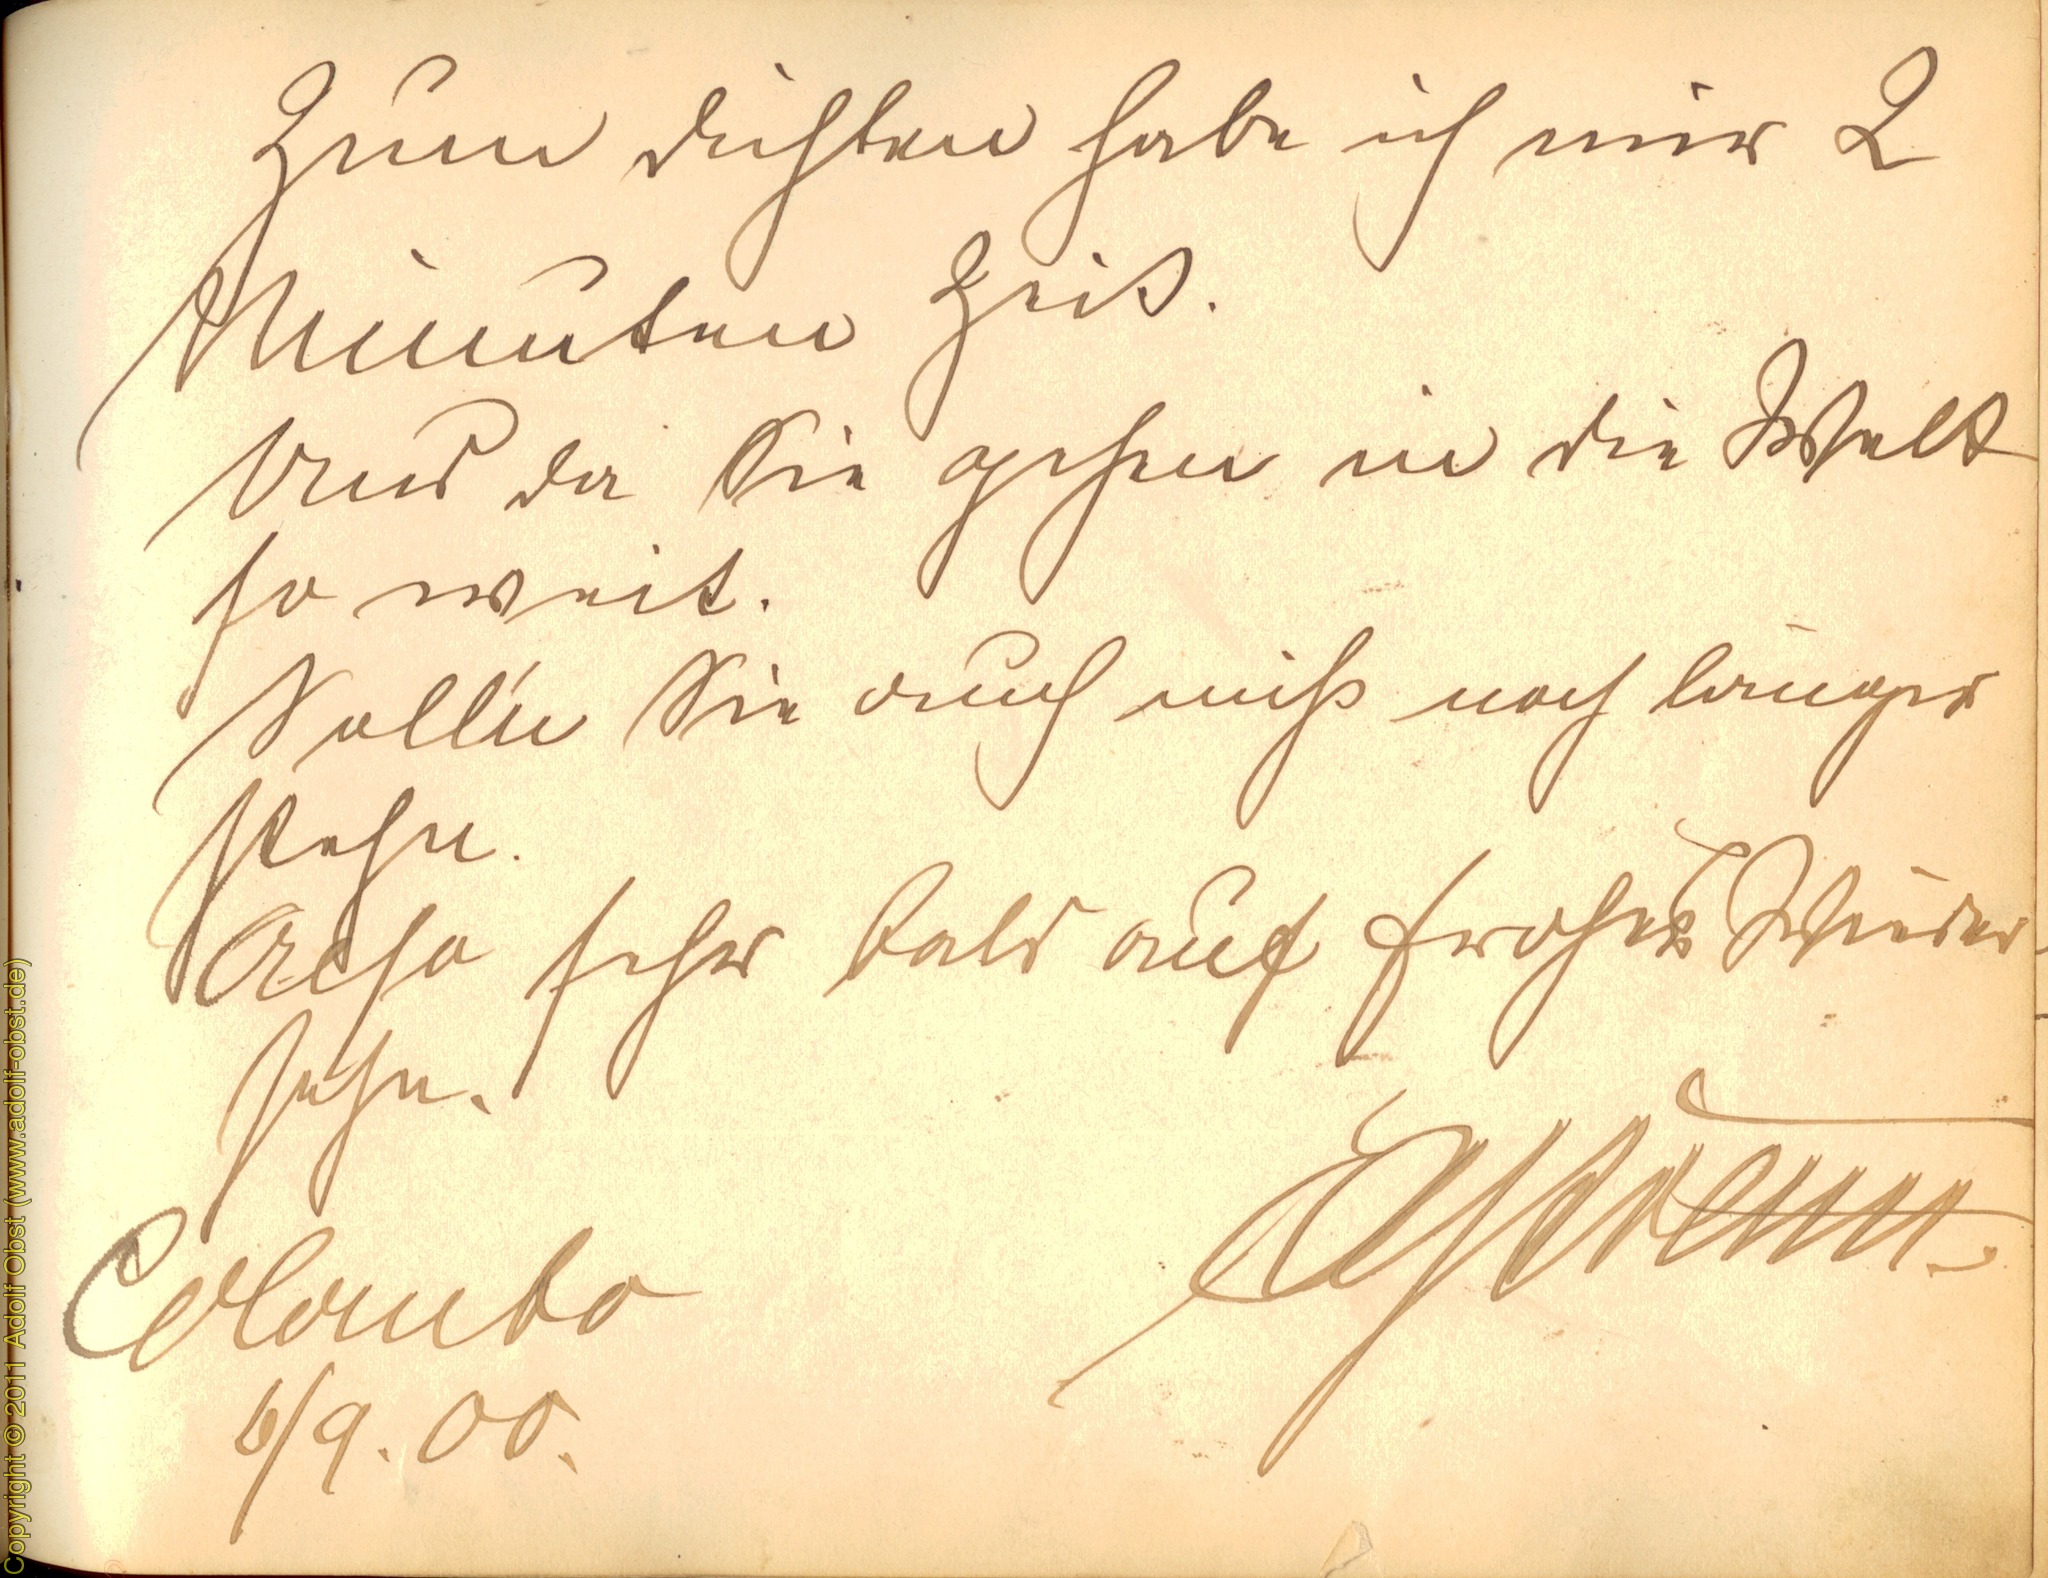 Zum dichten habe ich nur 2
Minuten Zeit.
Und da Sie gehen in die Welt
so weit.
Soll'n Sie auch nicht noch länger
stehn.
Also sehr bald auf frohes Wieder-
sehn.
Colombo
6/9.00.
Copyright © 2011 Adolf Obst (www.adolf-obst.de)